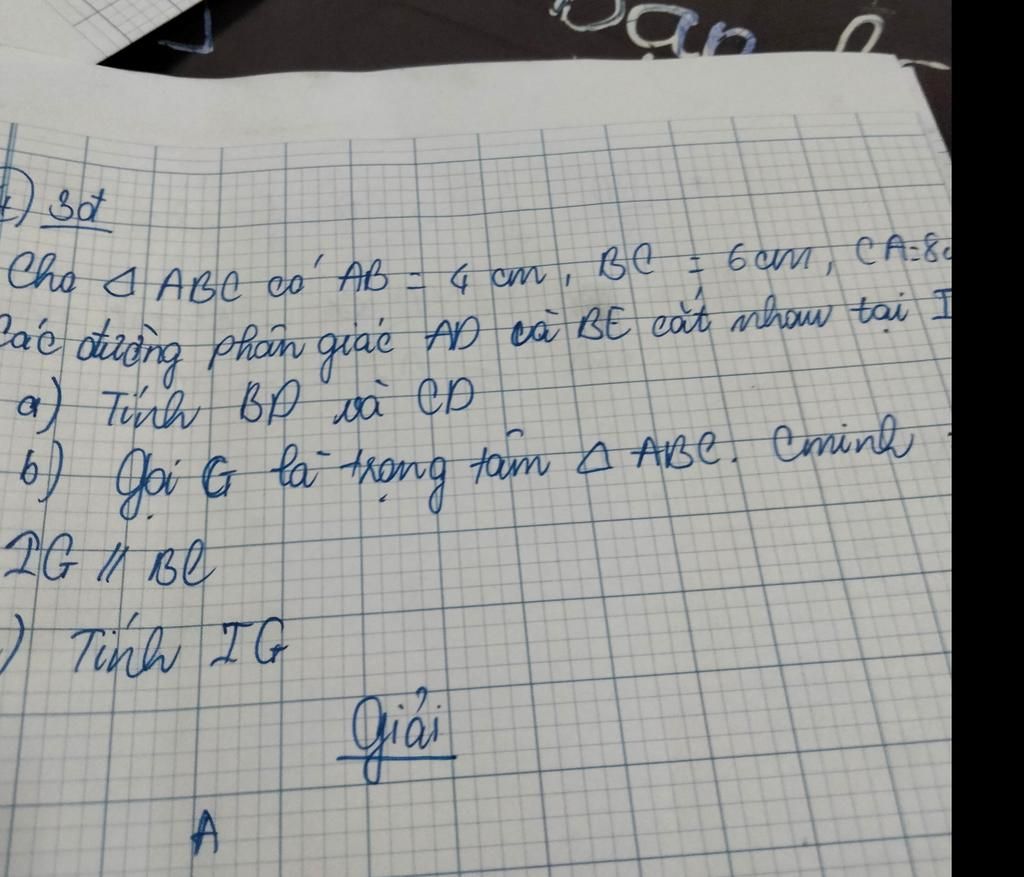 bạn
) 3đ
Cho △ ABC có AB = 4 cm, BC = 6cm, CA=8c
Các đường phân giác AD và BE cắt nhau tại I
a) Tính BD và CD
b) Gọi G là trọng tâm △ ABC. Cminh
IG // BC
) Tính IG
Giải
A